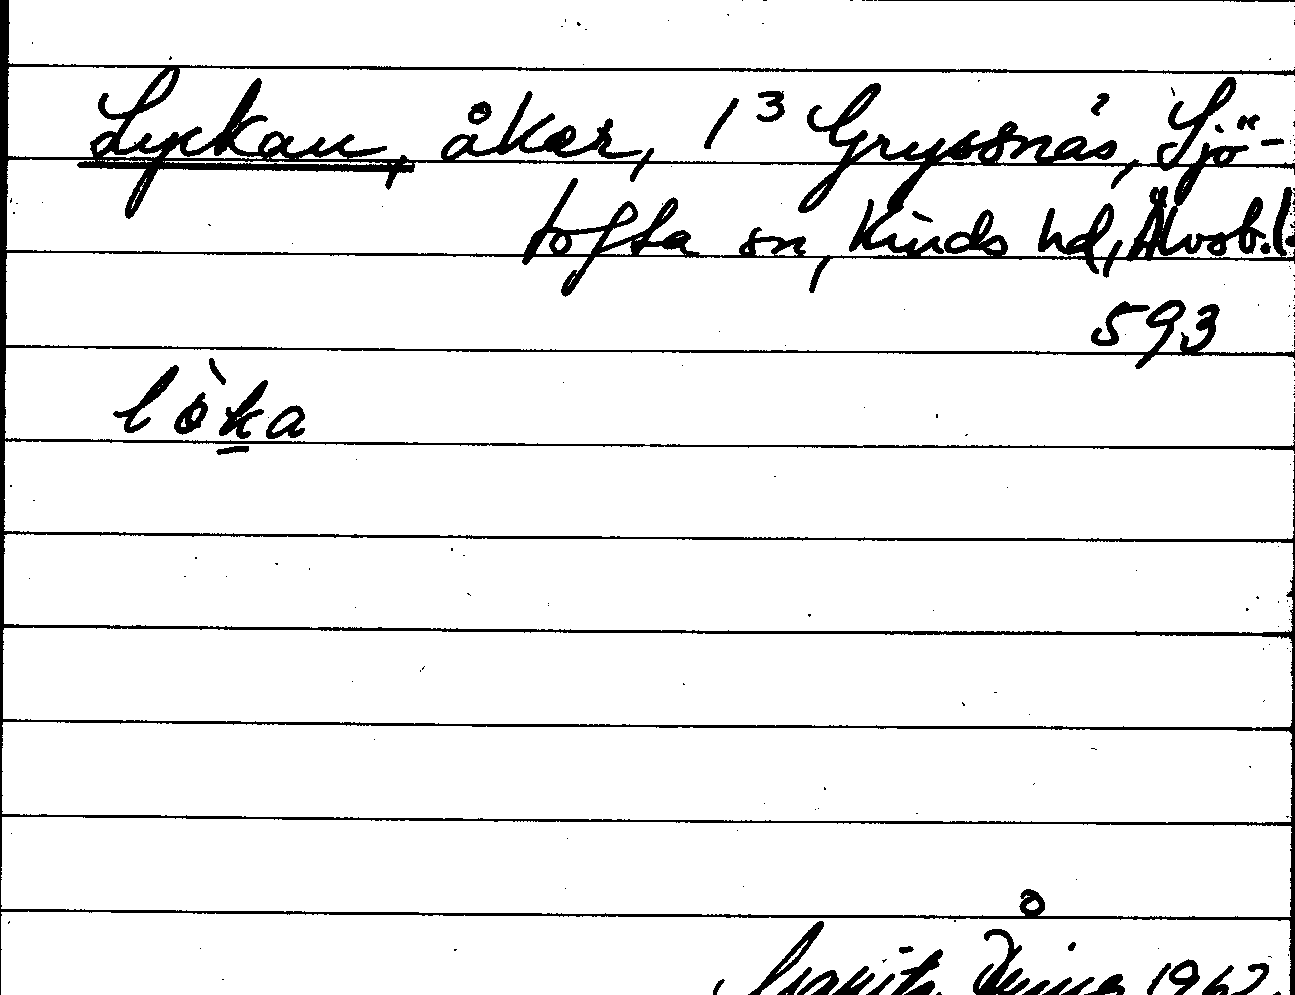 Lyckan, åker, 1³ Gryssnäs, Sjö-
tofta sn, Kinds hd, Älvsb.l.
593
lö̀ka
1962